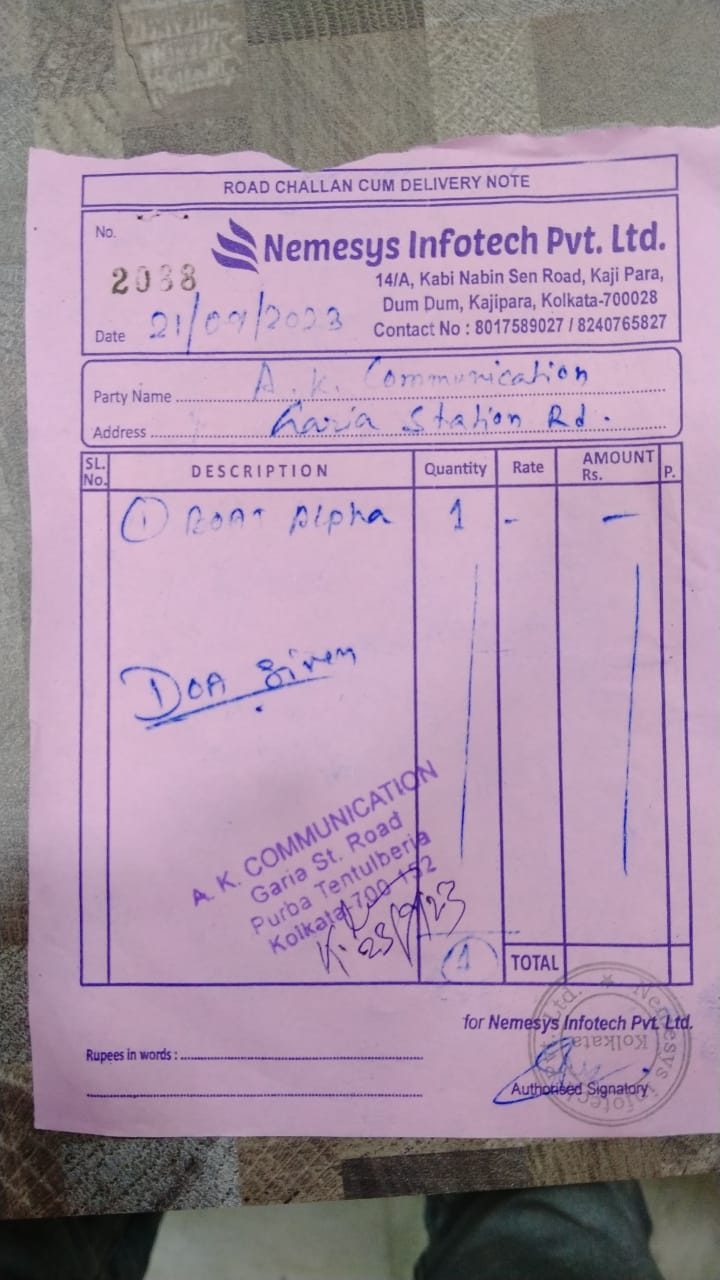 ROAD CHALLAN CUM DELIVERY NOTE
No.
Nemesys Infotech Pvt. Ltd.
2088
14/A, Kabi Nabin Sen Road, Kaji Para,
Dum Dum, Kajipara, Kolkata-700028
Date 21/09/2023
Contact No : 8017589027 / 8240765827
Party Name A. K. Communication
Address Garia Station Rd.
SL. No. DESCRIPTION Quantity Rate AMOUNT Rs. P.
① BOAT Alpha 1 - -
DOA given
A. K. COMMUNICATION
Garia St. Road
Purba Tentulberia
Kolkata-700 152
23/9/23
1 TOTAL
for Nemesys Infotech Pvt. Ltd.
Nemesys Infotech Pvt. Ltd.
Kolkata
Rupees in words :
Authorised Signatory